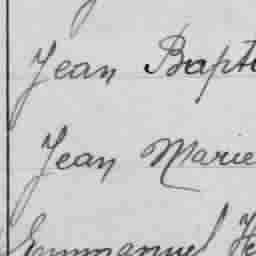 Jean Bapt
Jean Marie
Emmanuel